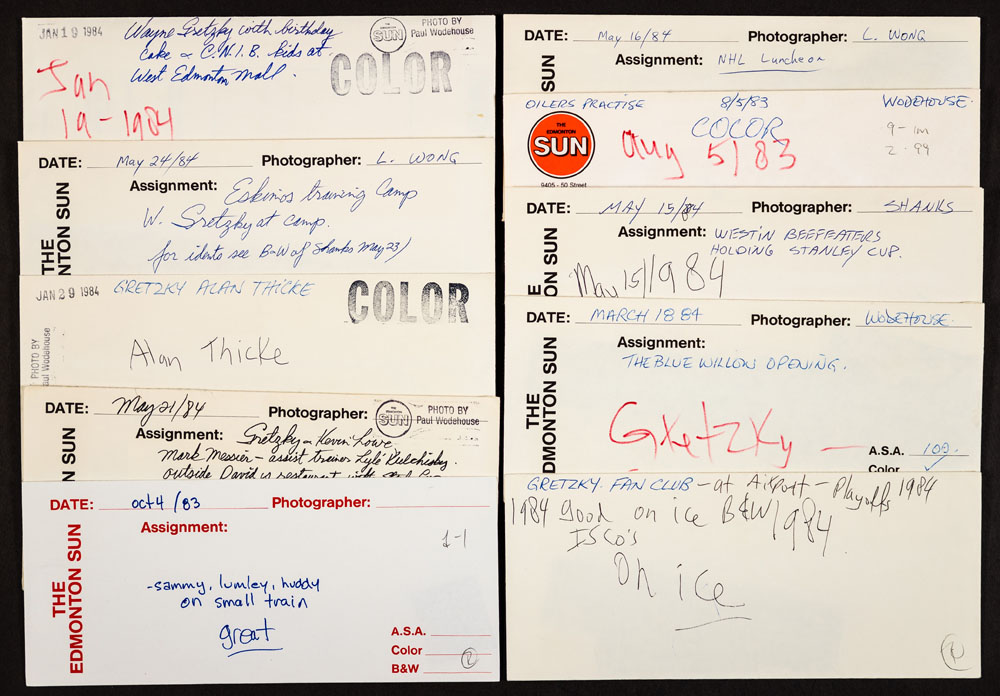 JAN 19 1984
Wayne Gretzky with birthday
cake & C.N.I.B. kids at
West Edmonton Mall.
SUN
PHOTO BY
Paul Wodehouse
COLOR
Jan
19-1984
DATE: May 24/84 Photographer: L. WONG
Assignment: Eskimos training Camp
W. Gretzky at camp.
for idents see B&W of Shanks May 23/
THE
EDMONTON SUN
JAN 29 1984
GRETZKY ALAN THICKE
COLOR
Alan Thicke
PHOTO BY
Paul Wodehouse
DATE: May 21/84 Photographer:
SUN
PHOTO BY
Paul Wodehouse
Assignment: Gretzky - Kevin Lowe
Mark Messier - assist trainer Lyle Kulchisky.
outside David's restaurant with
N SUN
DATE: oct 4 /83 Photographer:
Assignment:
1-1
-sammy, lumley, huddy
on small train
great
THE
EDMONTON SUN
A.S.A.
Color
B&W
DATE: May 16/84 Photographer: L. WONG
Assignment: NHL Luncheon
SUN
OILERS PRACTISE 8/5/83 WODEHOUSE
COLOR
9-1m
2-99
THE
EDMONTON
SUN
9405 - 50 Street
Aug 5/83
DATE: MAY 15/84 Photographer: SHANKS
Assignment: WESTIN BEEFEATERS
HOLDING STANLEY CUP.
May 15/1984
ON SUN
DATE: MARCH 18 84 Photographer: WODEHOUSE
Assignment:
THE BLUE WILLOW OPENING.
Gretzky
THE
EDMONTON SUN
A.S.A. 100
Color ✓
GRETZKY FAN CLUB - at Airport - Playoffs 1984
1984 good on ice B&W 1984
ISCO's
On ice